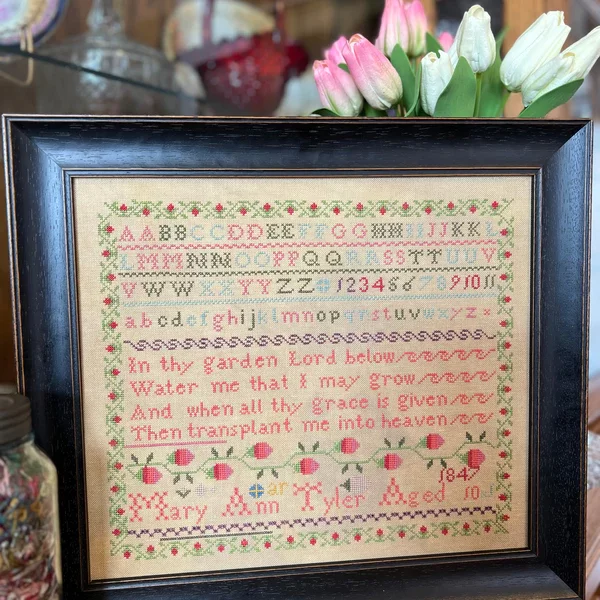 AABBCCDDEEFFGGHHIIJJKKL
LMMNNOOPPQQRRSSTTUUV
VWWXXYYZZ 1234567891011
abcdefghijklmnopqrstuvwxyz
In thy garden Lord below
Water me that I may grow
And when all thy grace is given
Then transplant me into heaven
1847
Mary Ann Tyler Aged 10